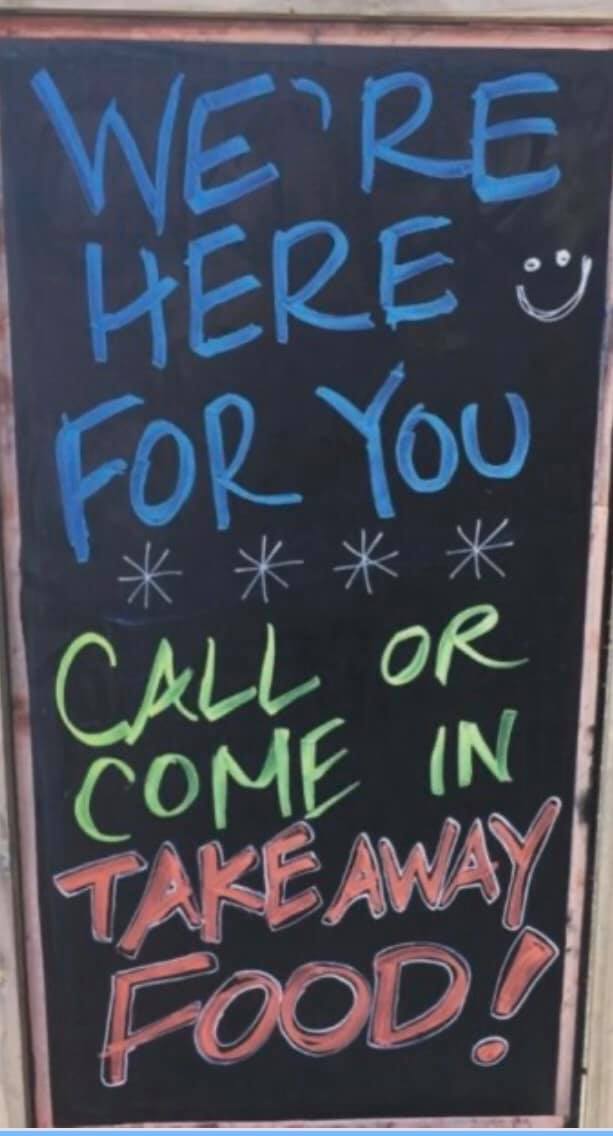 WE'RE
HERE
FOR YOU
CALL OR
COME IN
TAKE AWAY
FOOD!